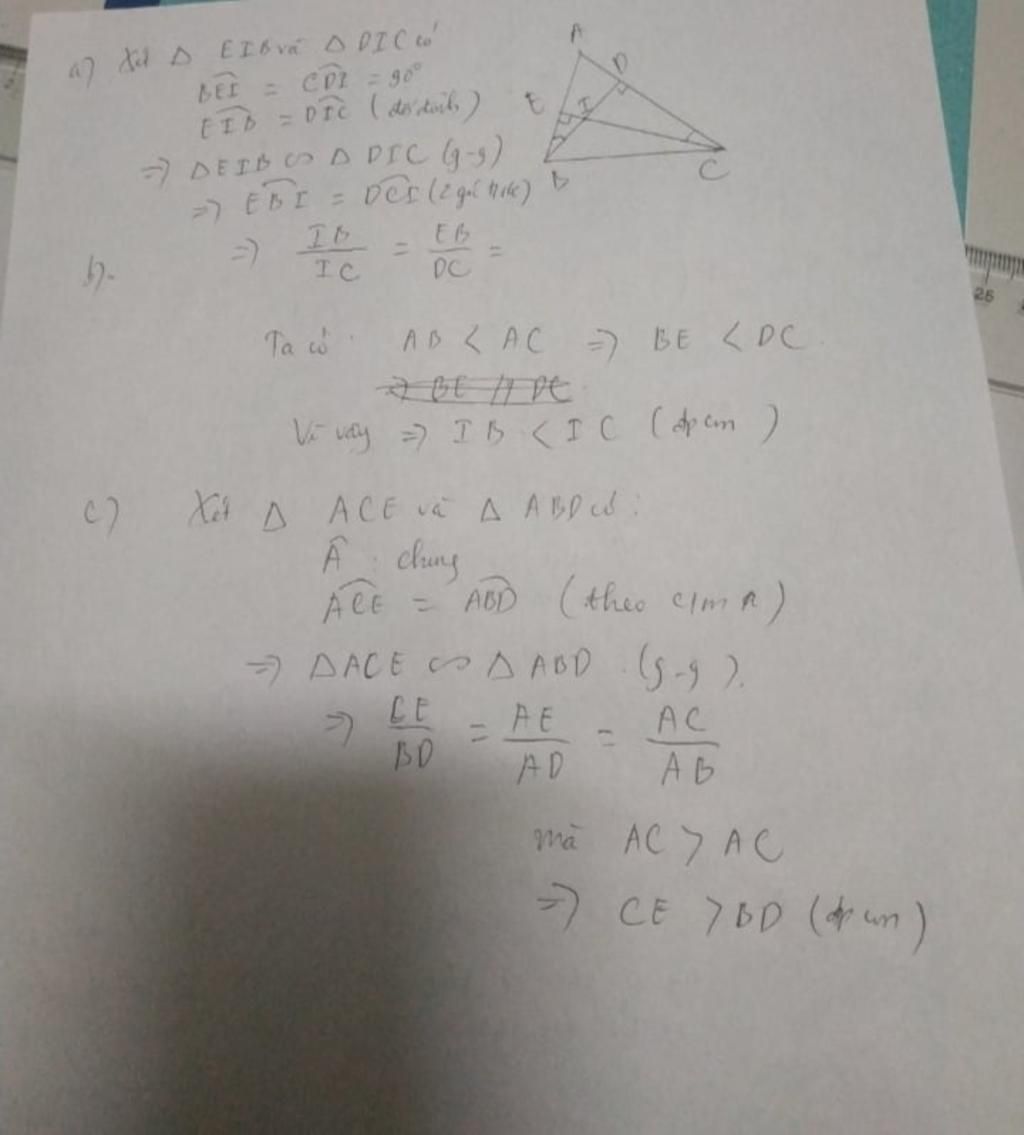 a) Xét Δ EIB và Δ DIC có
BEI = CDI = 90°
EIB = DIC (đối đỉnh)
⇒ ΔEIB ∽ Δ DIC (g-g)
⇒ EBI = DCI (2 góc)
b). ⇒ IB/IC = EB/DC =
Ta có: AB < AC ⇒ BE < DC.
⇒ BE // DC
Vì vậy ⇒ IB < IC (đpcm)
c) Xét Δ ACE và Δ ABD có:
Â : chung
ACE = ABD (theo c/m A)
⇒ ΔACE ∽ Δ ABD (g-g).
⇒ CE/BD = AE/AD = AC/AB
mà AC > AC
⇒ CE > BD (đpcm)
A
D
E
I
B
C
26